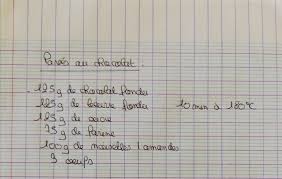 Pavés au chocolat.
125g de chocolat fondu
125g de beurre fondu 10 min à 180°C
125g de sucre
75g de farine
100g de noisettes / amandes
3 oeufs